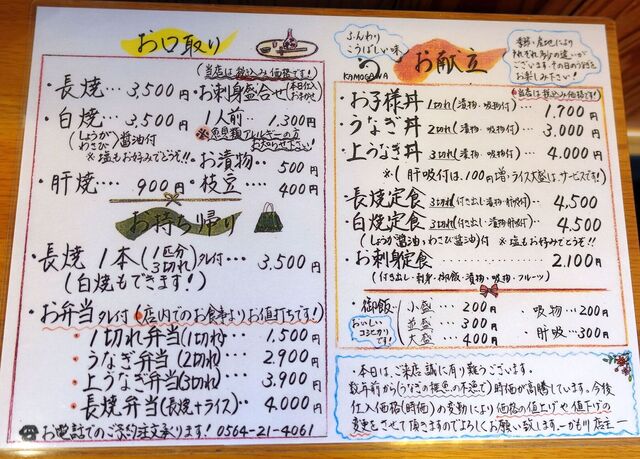 お口取り
(当店は税込み価格です!)
・長焼… 3,500円
・お刺身盛合せ(本日仕入おまかせ)
・白焼… 3,500円
1人前… 1,300円
(しょうが わさび)醤油付
※塩もお好みでどうぞ!!
※魚貝類アレルギーの方お知らせ下さい!
・お漬物… 500円
・肝焼… 900円
・枝豆… 400円
お持ち帰り
・長焼 1本(1匹分 3切れ)タレ付… 3,500円
(白焼もできます!)
・お弁当タレ付(店内でのお食事よりお値打ちです!)
・1切れ弁当(1切れ)… 1,500円
・うなぎ弁当(2切れ)… 2,900円
・上うなぎ弁当(3切れ)… 3,900円
・長焼弁当(長焼+ライス)… 4,000円
☎お電話でのご予約注文承ります! 0564-21-4061
ふんわり
こうばしい味
KAMOGAWA
お献立
季節・産地により
それぞれ多少の違いが
ございます。その日のうなぎを
お楽しみ下さい!
(当店は税込み価格です!)
・お子様丼 1切れ(漬物・吸物付)… 1,700円
・うなぎ丼 2切れ(漬物・吸物付)… 3,000円
・上うなぎ丼 3切れ(漬物・吸物付)… 4,000円
※(肝吸付は、100円増・ライス大盛は、サービスです!)
・長焼定食 3切れ(付き出し・漬物・肝吸付)… 4,500円
・白焼定食 3切れ(付き出し・漬物・肝吸付)… 4,500円
(しょうが醤油、わさび醤油)付 ※塩もお好みでどうぞ!!
・お刺身定食… 2,100円
(付き出し・刺身・御飯・漬物・吸物・フルーツ)
・御飯
小盛… 200円
並盛… 300円
大盛… 400円
おいしい
コシヒカリ
です!
・吸物… 200円
・肝吸… 300円
・本日は、ご来店誠に有り難うございます。
数年前から(うなぎの稚魚の不漁で)時価が高騰しています。今後
仕入価格(時価)の変動により価格の値上げや値下げの
変更をさせて頂きますのでよろしくお願い致します。—かも川 店主—